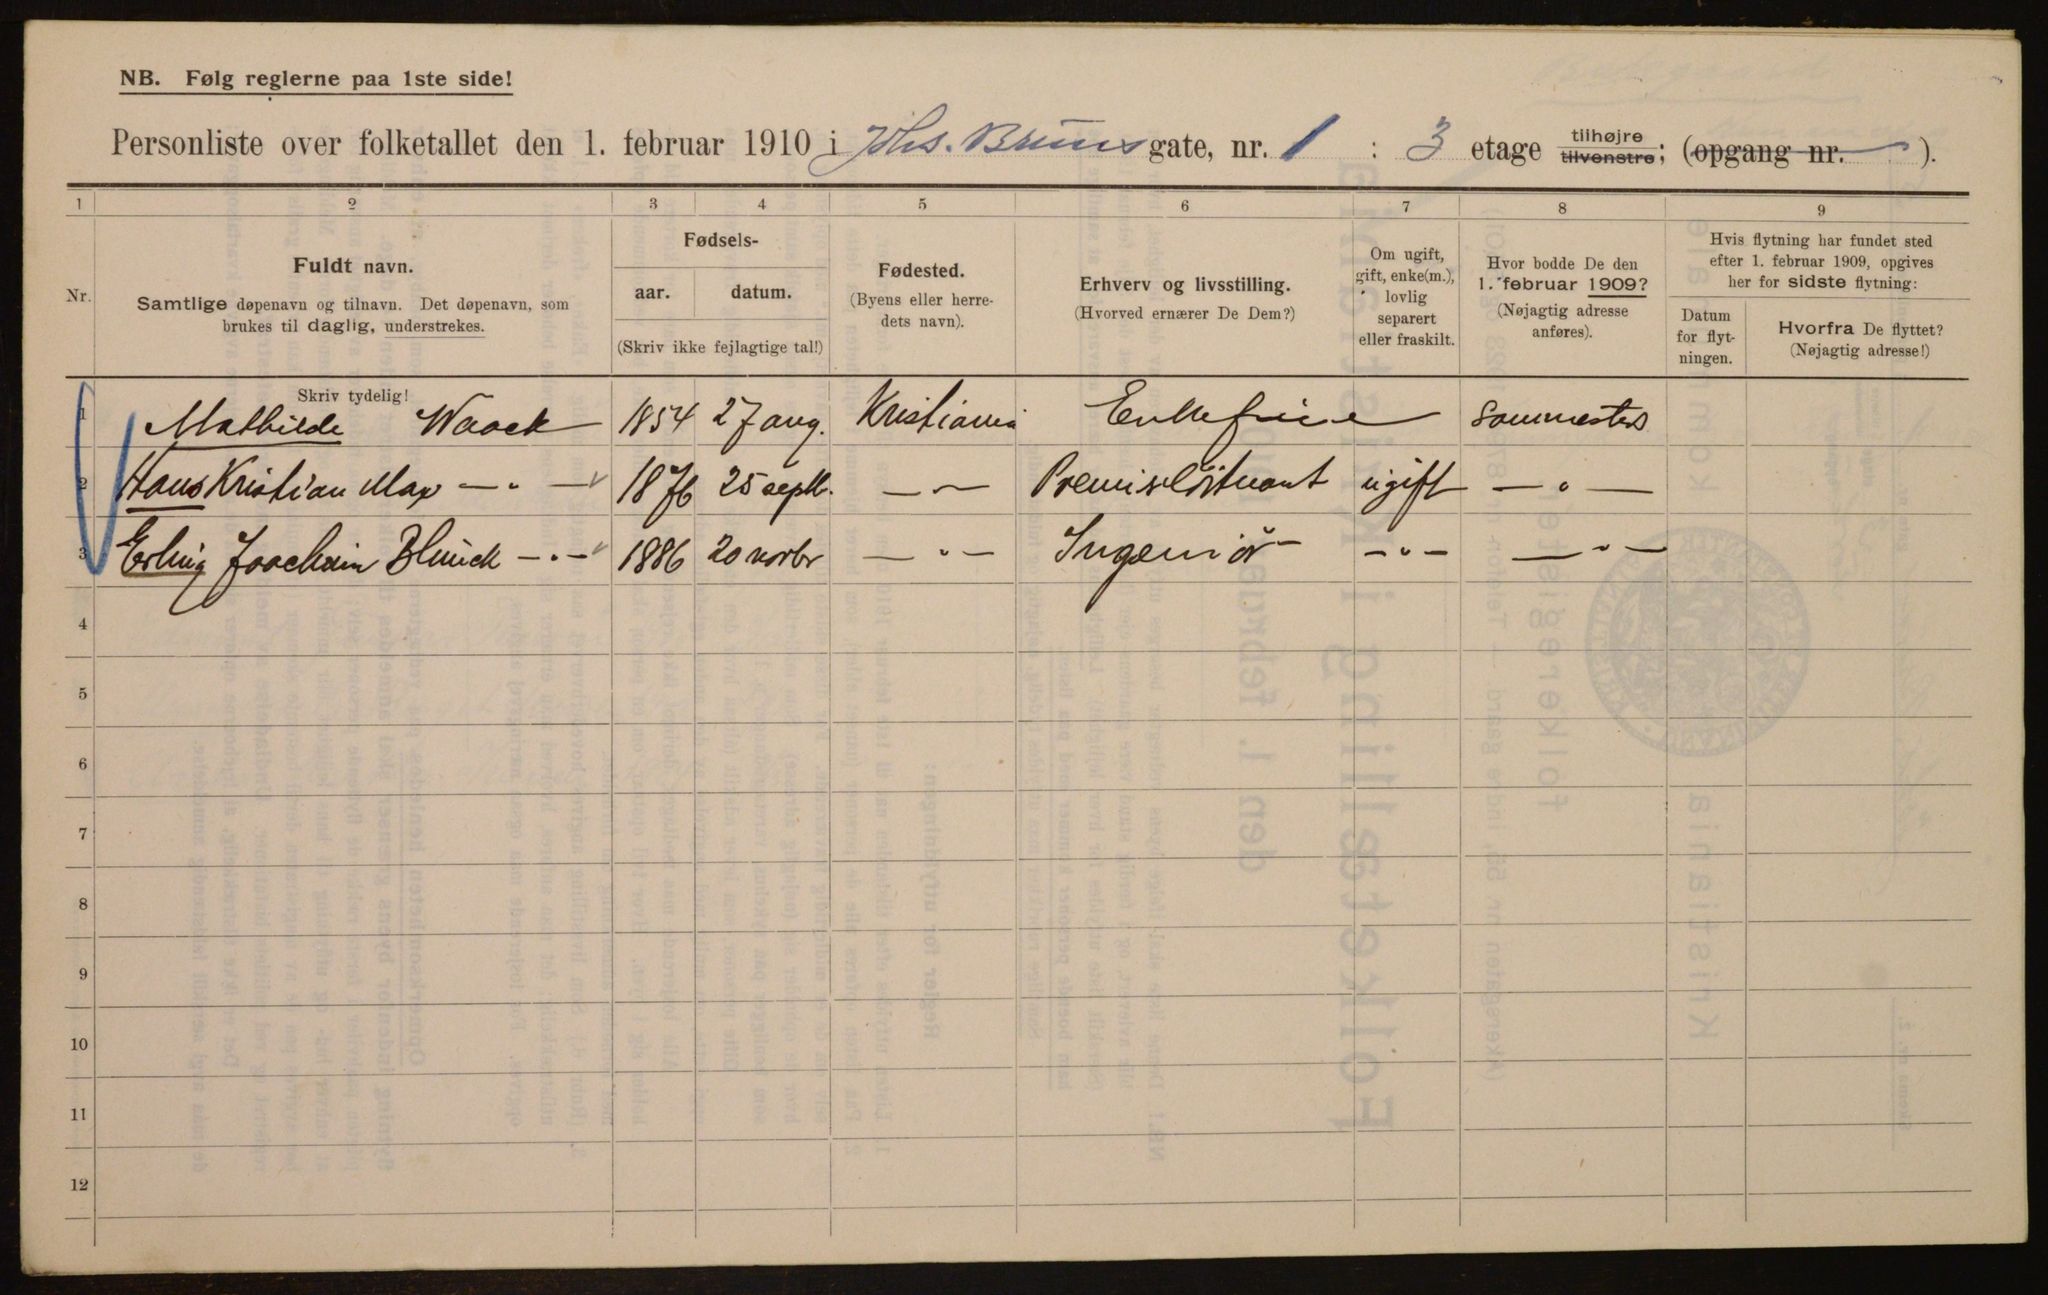 NB. Følg reglerne paa 1ste side!
Personliste over folketallet den 1. februar 1910 i Jhs. Bruns gate, nr. 1 : 3 etage tilhøjre tilvenstre; (opgang nr. ).
1 2 3 4 5 6 7 8 9
Nr.
Fuldt navn.
Samtlige døpenavn og tilnavn. Det døpenavn, som
brukes til daglig, understrekes.
Fødsels-
aar. datum.
(Skriv ikke fejlagtige tal!)
Fødested.
(Byens eller herre-
dets navn).
Erhverv og livsstilling.
(Hvorved ernærer De Dem?)
Om ugift,
gift, enke(m.),
lovlig
separert
eller fraskilt.
Hvor bodde De den
1. februar 1909?
(Nøjagtig adresse
anføres).
Hvis flytning har fundet sted
efter 1. februar 1909, opgives
her for sidste flytning:
Datum
for flyt-
ningen.
Hvorfra De flyttet?
(Nøjagtig adresse!)
Skriv tydelig!
1 Mathilde Waack 1854 27 aug. Kristiania Enkefrue sammesteds
2 Hans Kristian Max — " — 1876 25 septb. — " — Premierløitnant ugift — " —
3 Erling Joachim Blunck — " — 1886 20 novbr — " — Ingeniør — " — — " —
4
5
6
7
8
9
10
11
12